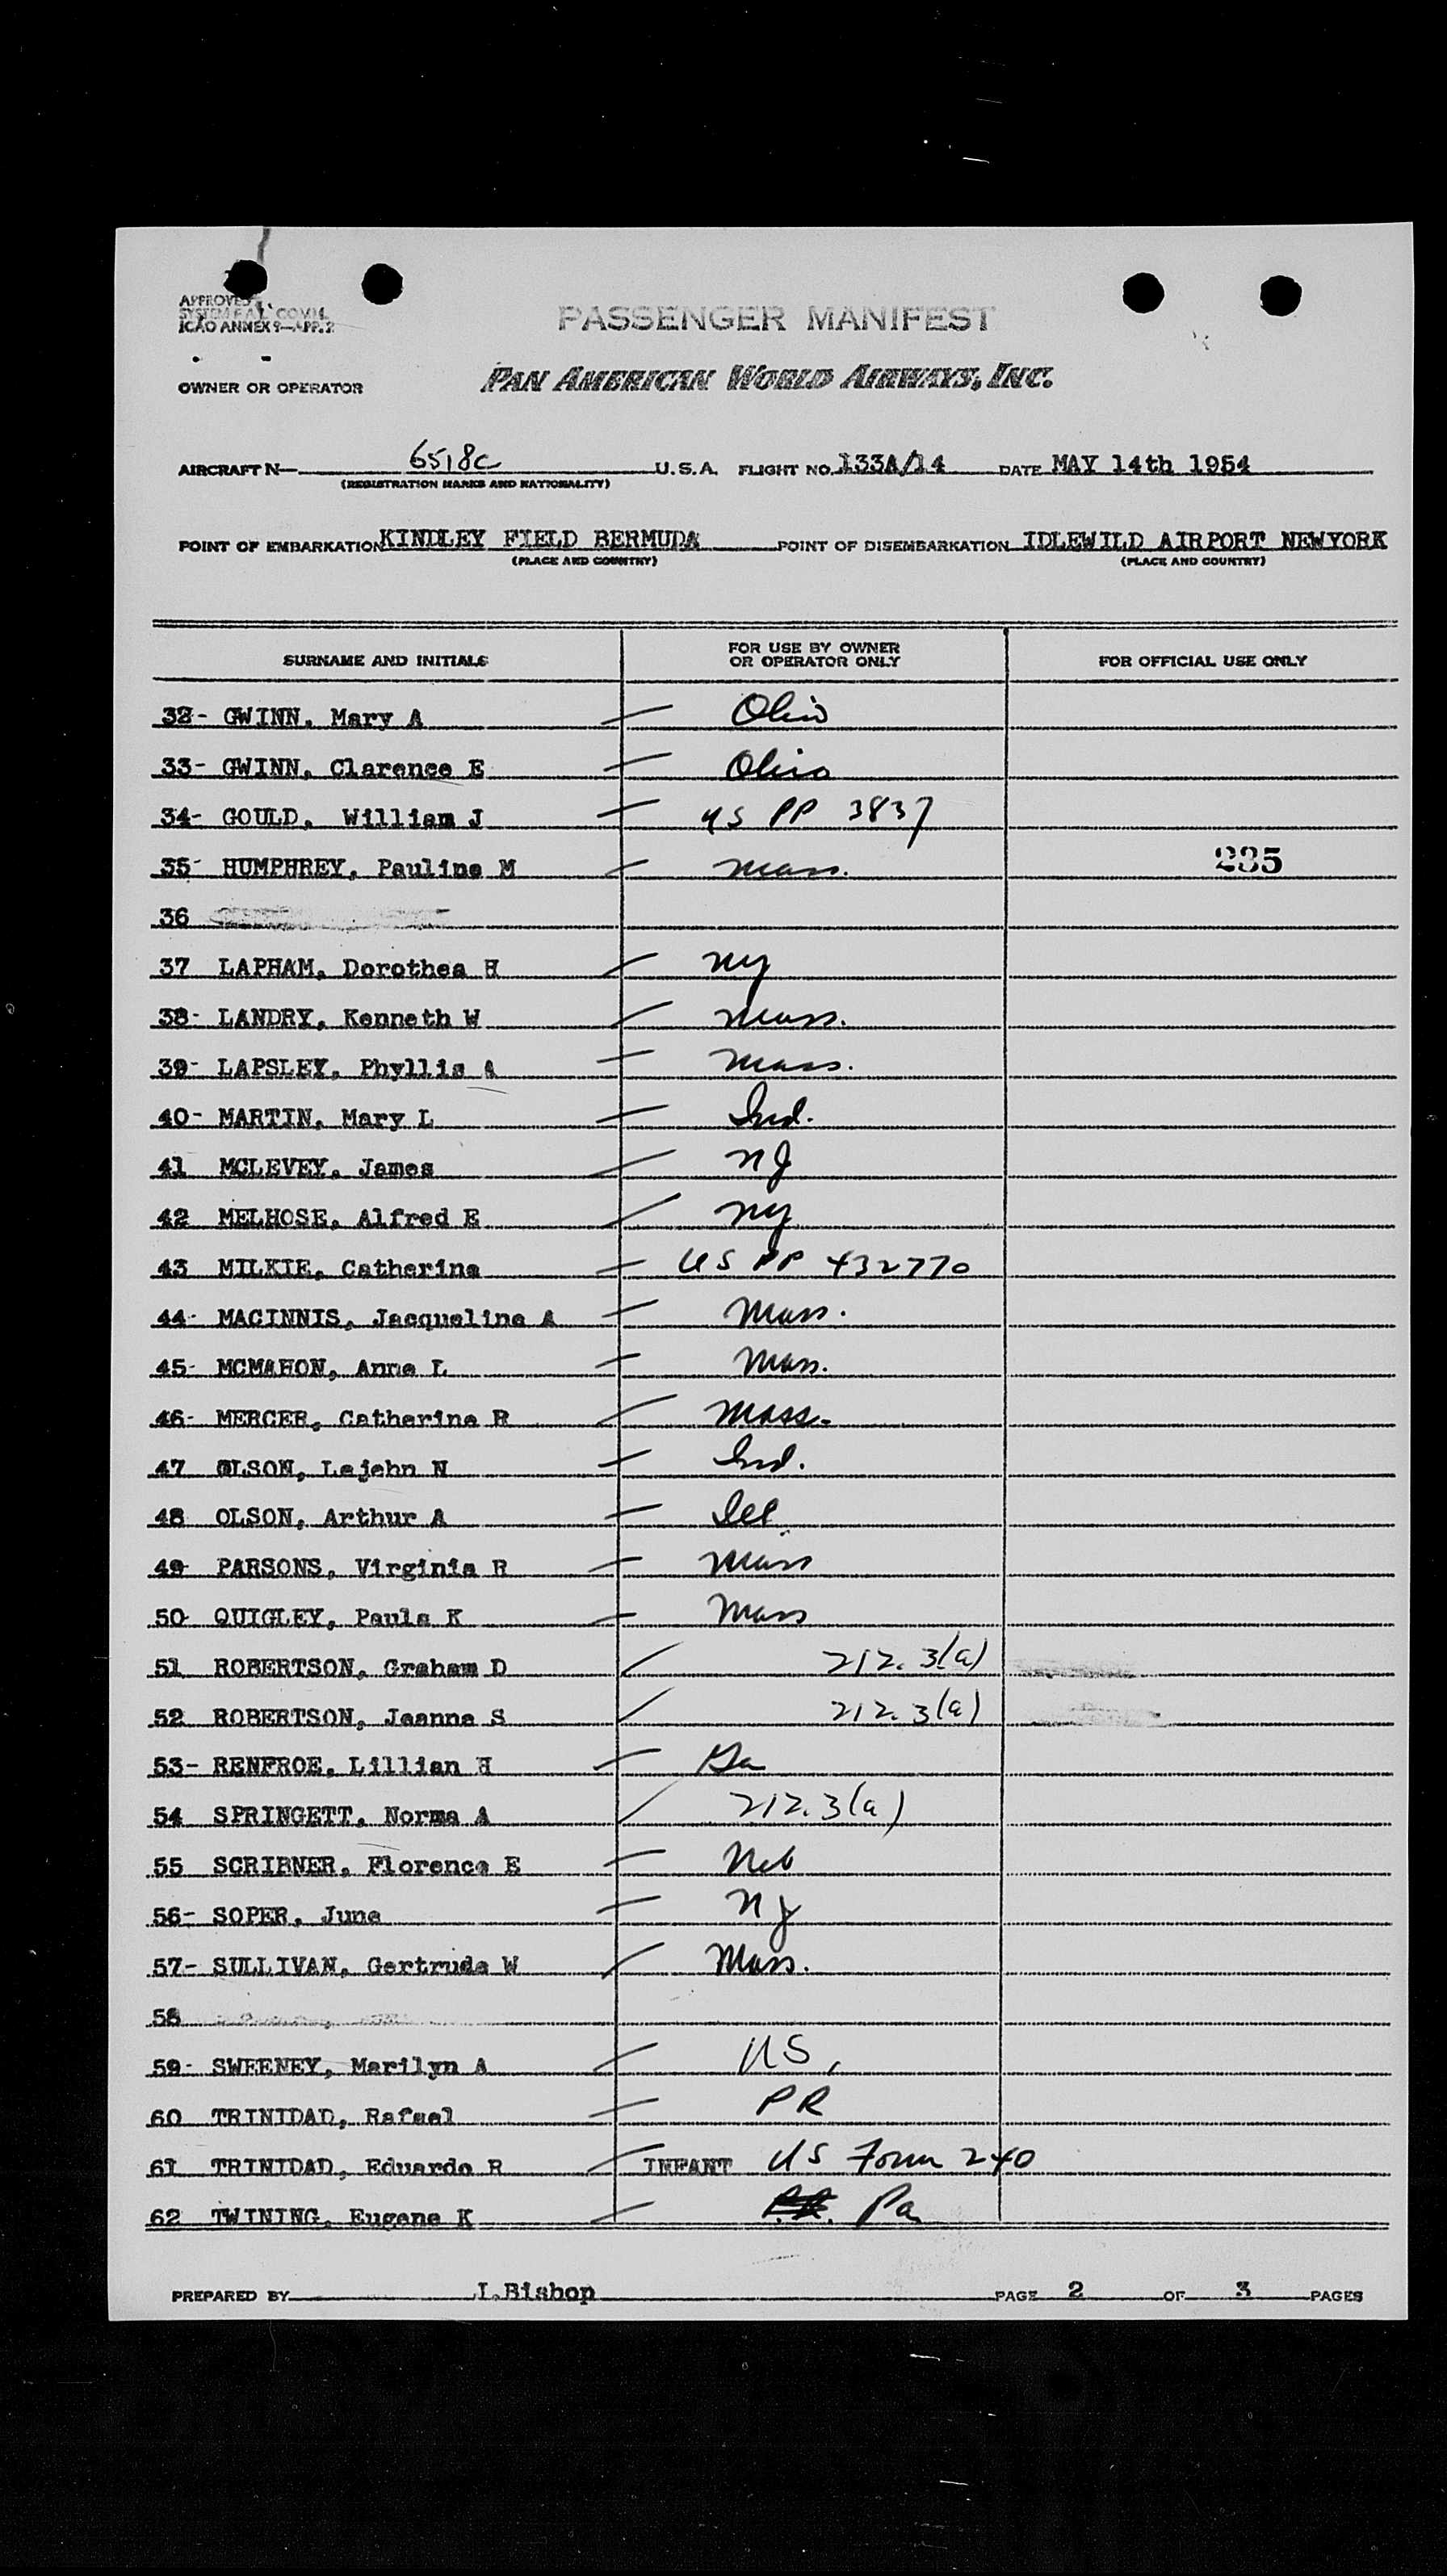 APPROVED
SYSTEM F.A.L. COM'L
ICAO ANNEX 9—APP. 2
PASSENGER MANIFEST
OWNER OR OPERATOR PAN AMERICAN WORLD AIRWAYS, INC.
AIRCRAFT N— 6518C U.S.A. FLIGHT NO. 133A/14 DATE MAY 14th 1954
(REGISTRATION MARKS AND NATIONALITY)
POINT OF EMBARKATION KINDLEY FIELD BERMUDA POINT OF DISEMBARKATION IDLEWILD AIRPORT NEWYORK
(PLACE AND COUNTRY) (PLACE AND COUNTRY)
SURNAME AND INITIALS FOR USE BY OWNER OR OPERATOR ONLY FOR OFFICIAL USE ONLY
32- GWINN, Mary A Ohio
33- GWINN, Clarence E Ohio
34- GOULD, William J US PP 3837
35- HUMPHREY, Pauline M Mass. 235
36
37 LAPHAM, Dorothea H NY
38- LANDRY, Kenneth W Mass.
39- LAPSLEY, Phyllis A Mass.
40- MARTIN, Mary L Ind.
41 MCLEVEY, James NJ
42 MELHOSE, Alfred E NY
43 MILKIE, Catherine US PP 432770
44- MACINNIS, Jacqueline A Mass.
45- MCMAHON, Anne L Mass.
46- MERCER, Catherine R Mass.
47 OLSON, Lajehn N Ind.
48 OLSON, Arthur A Ill
49- PARSONS, Virginia R Mass
50- QUIGLEY, Paula K Mass
51 ROBERTSON, Graham D 212.3(a)
52 ROBERTSON, Jeanne S 212.3(a)
53- RENFROE, Lillian H Ga
54 SPRINGETT, Norma A 212.3(a)
55 SCRIBNER, Florence E Neb
56- SOPER, June NJ
57- SULLIVAN, Gertrude W Mass.
58
59- SWEENEY, Marilyn A US,
60 TRINIDAD, Rafael PR
61 TRINIDAD, Eduardo R INFANT US Form 240
62 TWINING, Eugene K Pa
PREPARED BY I.Bishop PAGE 2 OF 3 PAGES